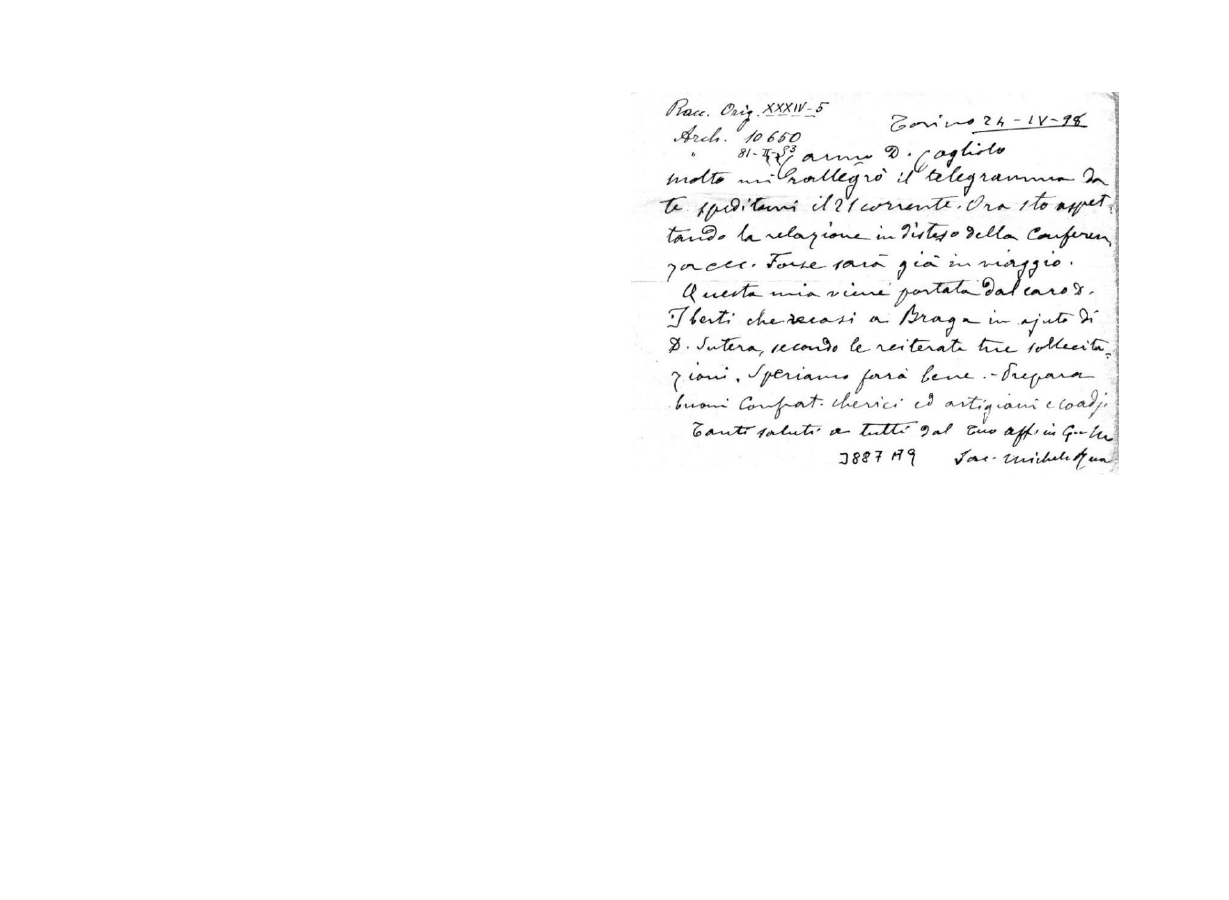 Racc. Orig. XXXIV-5
Torino 24-IV-98
Arch. 10650
" 81-II-
Carmo D. Cogliolo
molto mi rallegrò il telegramma da
te speditomi il 21 corrente. Ora sto aspet-
tando la relazione in disteso della Conferen
za ecc. Forse sarà già in viaggio.
Questa mia viene portata dal caro D.
Iberti che recasi a Braga in ajuto di
D. Sutera, secondo le reiterate tue sollecita-
zioni. Speriamo farà bene. - Prepara
buoni Confrat. cherici ed artigiani e coadj.
Tanti saluti a tutti dal tuo aff. in G. e M.
3887 A9 Sac. Michele Rua